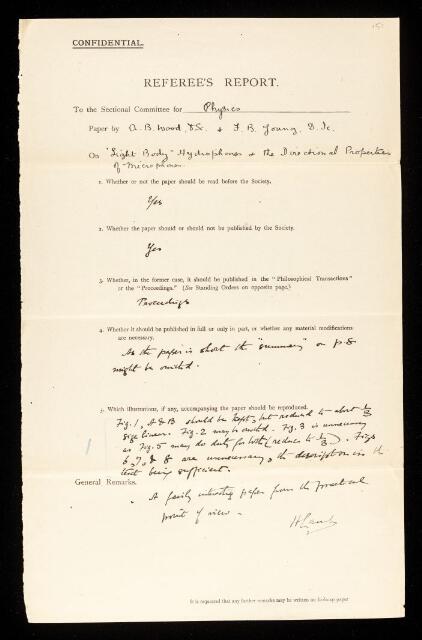 CONFIDENTIAL.
REFEREE'S REPORT.
To the Sectional Committee for Physics
Paper by A. B. Wood, D.Sc. & F. B. Young, D.Sc.
On "Light Body" Hydrophones & the Directional Properties
of Microphones.
1. Whether or not the paper should be read before the Society.
Yes
2. Whether the paper should or should not be published by the Society.
Yes
3. Whether, in the former case, it should be published in the "Philosophical Transactions"
or the "Proceedings." (See Standing Orders on opposite page.)
Proceedings
4. Whether it should be published in full or only in part, or whether any material modifications
are necessary.
As the paper is short the "summary" on p. 8
might be omitted.
5. Which illustrations, if any, accompanying the paper should be reproduced.
Fig. 1, A & B should be kept, but reduced to about
size linear. Fig. 2 may be omitted. Fig. 3 is unnecessary
as Fig. 5 may do duty for both (reduce to ). Figs
6, 7, & 8 are unnecessary, the description in the
text being sufficient.
General Remarks.
A fairly interesting paper from the practical
point of view.
H Lamb
It is requested that any further remarks may be written on foolscap paper